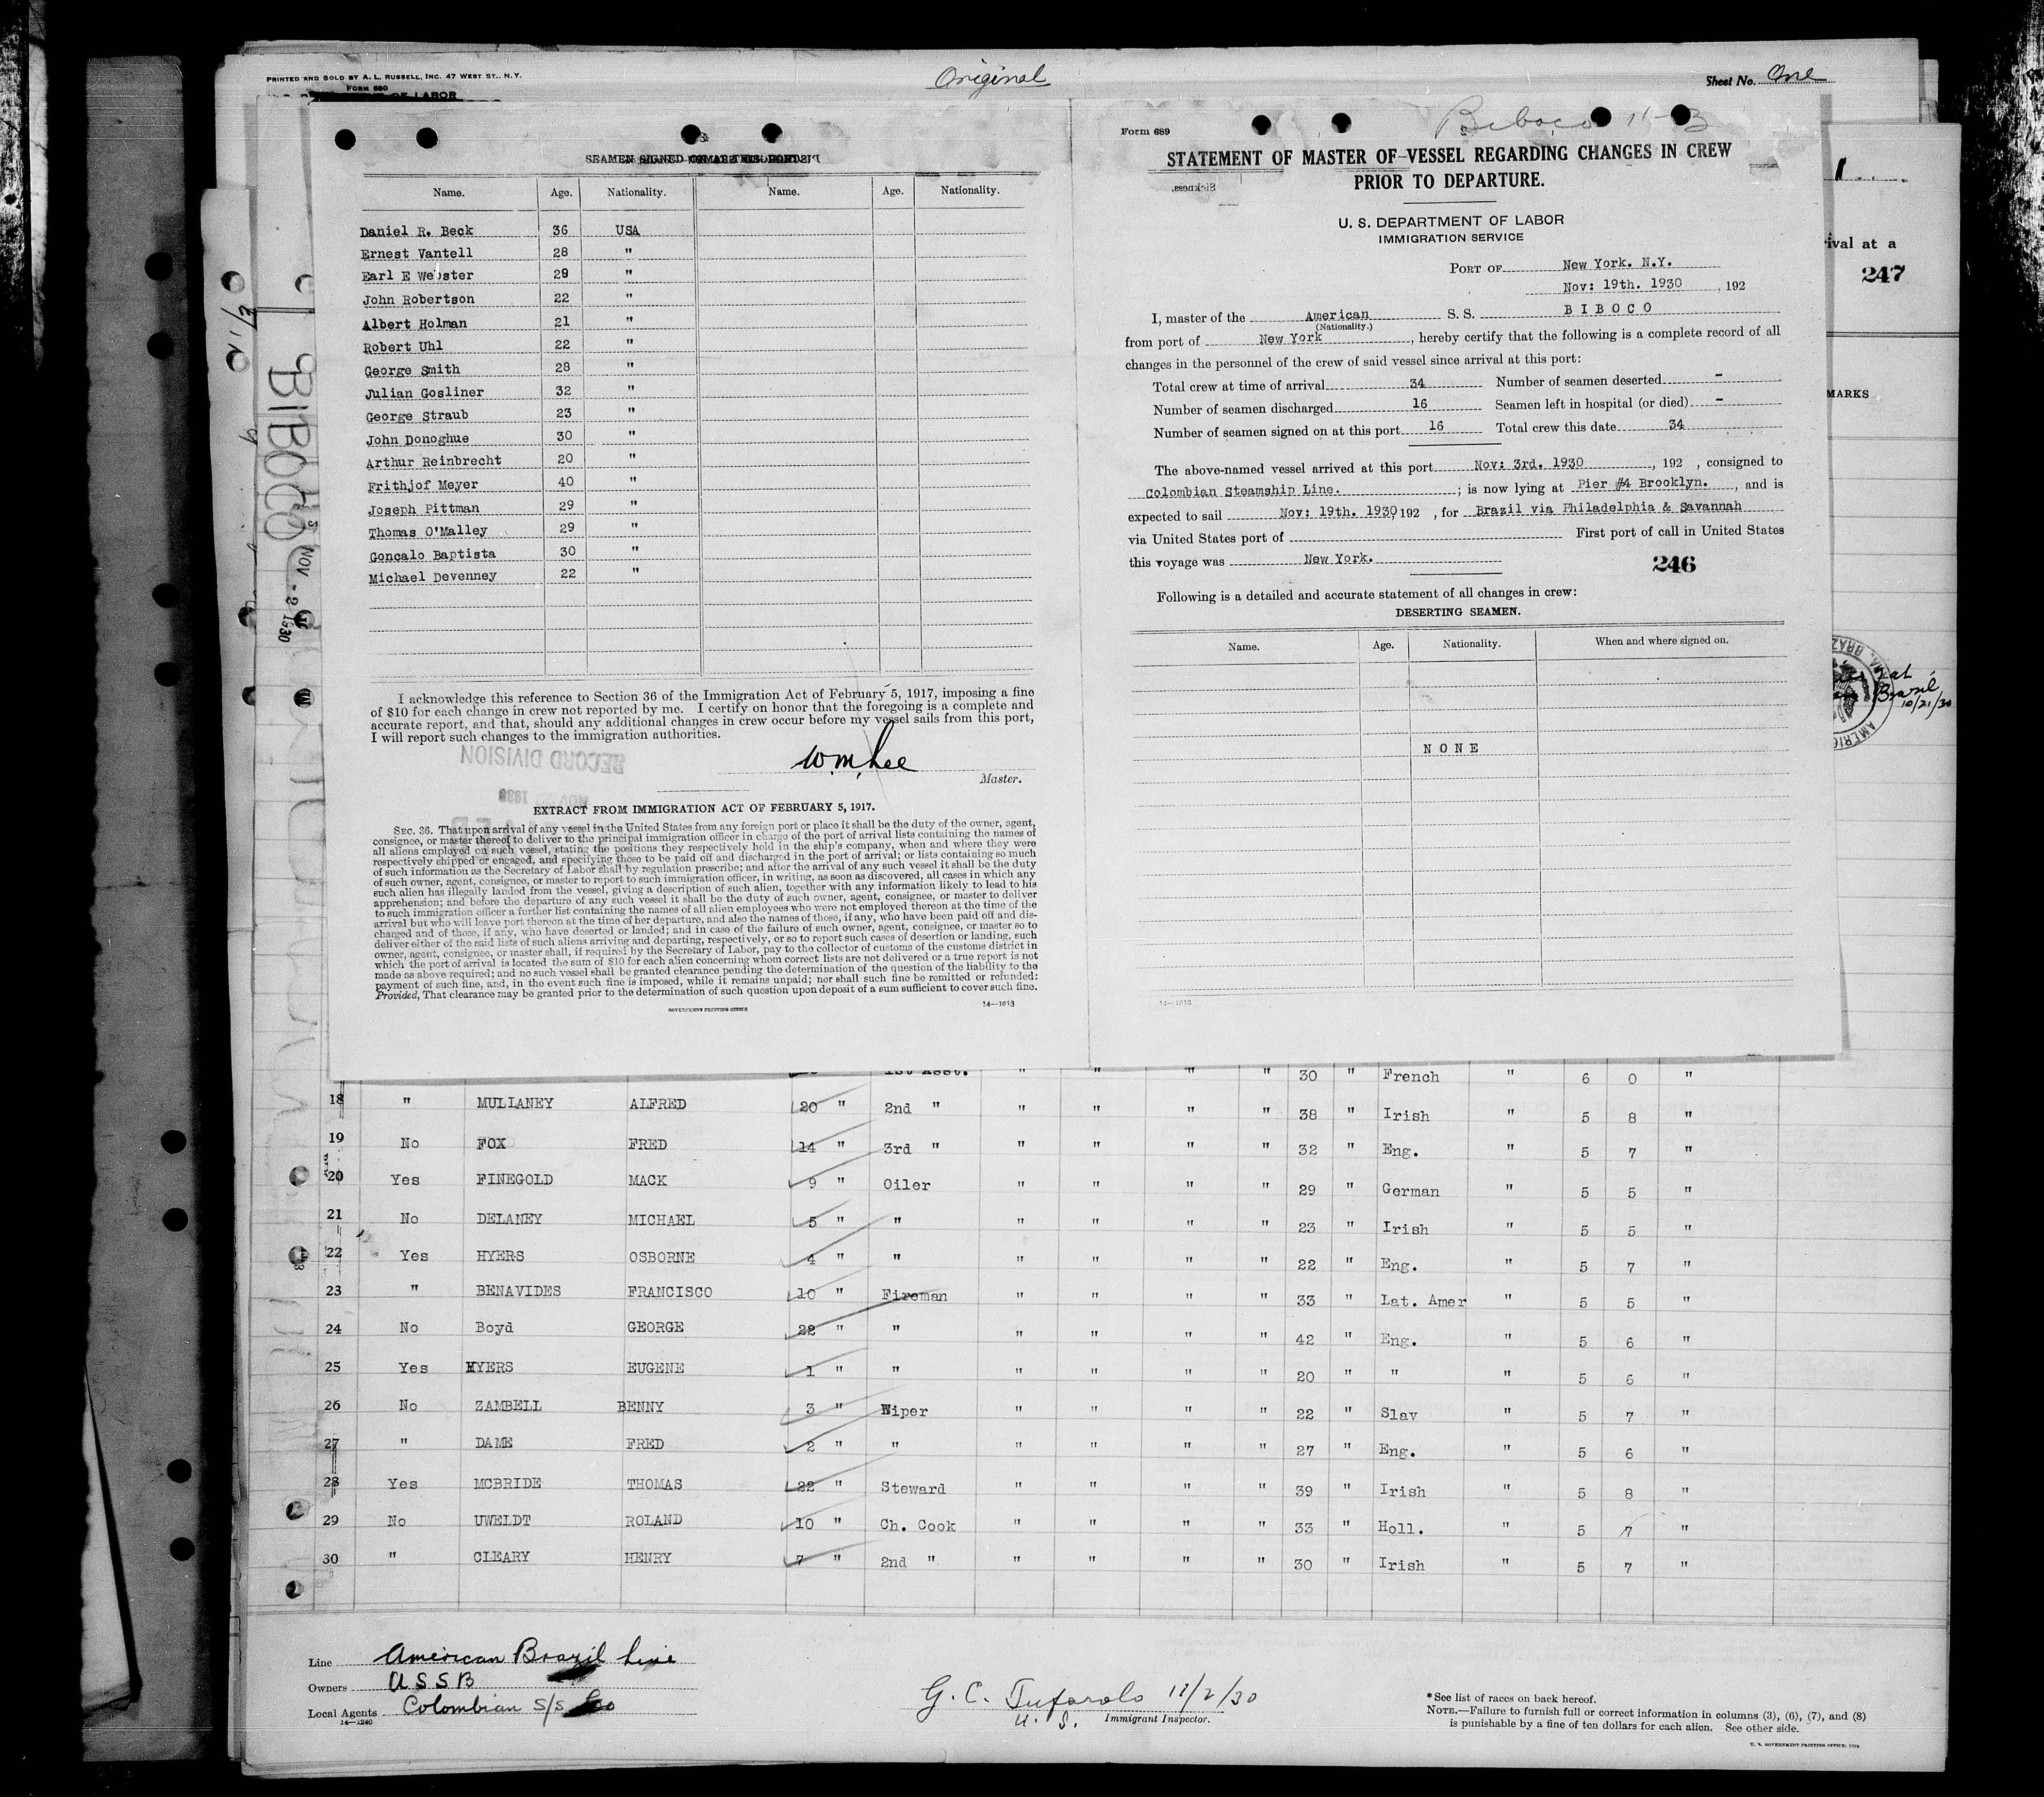 PRINTED AND SOLD BY A. L. RUSSELL, INC. 47 WEST ST., N.Y.
FORM 680
OF LABOR
Original
Sheet No. One
SEAMEN SIGNED ON AT THIS PORT
Name. Age. Nationality. Name. Age. Nationality.
Daniel R. Beck 36 USA
Ernest Vantell 28 "
Earl E Webster 29 "
John Robertson 22 "
Albert Holman 21 "
Robert Uhl 22 "
George Smith 28 "
Julian Gosliner 32 "
George Straub 23 "
John Donoghue 30 "
Arthur Reinbrecht 20 "
Frithjof Meyer 40 "
Joseph Pittman 29 "
Thomas O'Malley 29 "
Goncalo Baptista 30 "
Michael Devenney 22 "
I acknowledge this reference to Section 36 of the Immigration Act of February 5, 1917, imposing a fine
of $10 for each change in crew not reported by me. I certify on honor that the foregoing is a complete and
accurate report, and that, should any additional changes in crew occur before my vessel sails from this port,
I will report such changes to the immigration authorities.
RECORD DIVISION
W. M. Lee
Master.
NOV 1930
EXTRACT FROM IMMIGRATION ACT OF FEBRUARY 5, 1917.
SEC. 36. That upon arrival of any vessel in the United States from any foreign port or place it shall be the duty of the owner, agent,
consignee, or master thereof to deliver to the principal immigration officer in charge of the port of arrival lists containing the names of
all aliens employed on such vessel, stating the positions they respectively hold in the ship's company, when and where they were
respectively shipped or engaged, and specifying those to be paid off and discharged in the port of arrival; or lists containing so much
of such information as the Secretary of Labor shall by regulation prescribe; and after the arrival of any such vessel it shall be the duty
of such owner, agent, consignee, or master to report to such immigration officer, in writing, as soon as discovered, all cases in which any
such alien has illegally landed from the vessel, giving a description of such alien, together with any information likely to lead to his
apprehension; and before the departure of any such vessel it shall be the duty of such owner, agent, consignee, or master to deliver
to such immigration officer a further list containing the names of all alien employees who were not employed thereon at the time of the
arrival but who will leave port thereon at the time of her departure, and also the names of those, if any, who have been paid off and dis-
charged and of those, if any, who have deserted or landed; and in case of the failure of such owner, agent, consignee, or master so to
deliver either of the said lists of such aliens arriving and departing, respectively, or so to report such cases of desertion or landing, such
owner, agent, consignee, or master shall, if required by the Secretary of Labor, pay to the collector of customs of the customs district in
which the port of arrival is located the sum of $10 for each alien concerning whom correct lists are not delivered or a true report is not
made as above required; and no such vessel shall be granted clearance pending the determination of the question of the liability to the
payment of such fine, and, in the event such fine is imposed, while it remains unpaid; nor shall such fine be remitted or refunded:
Provided, That clearance may be granted prior to the determination of such question upon deposit of a sum sufficient to cover such fine.
GOVERNMENT PRINTING OFFICE
14—1613
Form 689
Biboco 11-3
STATEMENT OF MASTER OF VESSEL REGARDING CHANGES IN CREW
PRIOR TO DEPARTURE.
Sickness.
U. S. DEPARTMENT OF LABOR
IMMIGRATION SERVICE
PORT OF New York. N.Y.
Nov: 19th. 1930, 192
I, master of the American S. S. BIBOCO
(Nationality.)
from port of New York, hereby certify that the following is a complete record of all
changes in the personnel of the crew of said vessel since arrival at this port:
Total crew at time of arrival 34 Number of seamen deserted -
Number of seamen discharged 16 Seamen left in hospital (or died) -
Number of seamen signed on at this port 16 Total crew this date 34
The above-named vessel arrived at this port Nov: 3rd. 1930, 192 , consigned to
Colombian Steamship Line. ; is now lying at Pier #4 Brooklyn. , and is
expected to sail Nov: 19th. 1930, 192 , for Brazil via Philadelphia & Savannah
via United States port of First port of call in United States
this voyage was New York.
246
Following is a detailed and accurate statement of all changes in crew:
DESERTING SEAMEN.
Name. Age. Nationality. When and where signed on.
NONE
14—1613
1
rival at a
247
MARKS
Brazil
10/21/30
BIBOCO
NOV - 2 1930
1st Asst. " " " " 30 " French " 6 0 "
18 " MULLANEY ALFRED 20 " 2nd " " " " " 38 " Irish " 5 8 "
19 No FOX FRED 14 " 3rd " " " " " 32 " Eng. " 5 7 "
20 Yes FINEGOLD MACK 9 " Oiler " " " " 29 " German " 5 5 "
21 No DELANEY MICHAEL 5 " " " " " " 23 " Irish " 5 5 "
22 Yes HYERS OSBORNE 4 " " " " " " 22 " Eng. " 5 7 "
23 " BENAVIDES FRANCISCO 10 " Fireman " " " " 33 " Lat. Amer " 5 5 "
24 No Boyd GEORGE 22 " " " " " " 42 " Eng. " 5 6 "
25 Yes HYERS EUGENE 1 " " " " " " 20 " " " 5 6 "
26 No ZAMBELL BENNY 3 " Wiper " " " " 22 " Slav " 5 7 "
27 " DAME FRED 2 " " " " " " 27 " Eng. " 5 6 "
28 Yes MCBRIDE THOMAS 22 " Steward " " " " 39 " Irish " 5 8 "
29 No UWELDT ROLAND 10 " Ch. Cook " " " " 33 " Holl. " 5 7 "
30 " CLEARY HENRY 7 " 2nd " " " " " 30 " Irish " 5 7 "
Line American Brazil Line
Owners U S S B
Local Agents Colombian S/S Co
14—1240
G. C. Tufarolo 11/2/30
U. S. Immigrant Inspector.
* See list of races on back hereof.
NOTE.—Failure to furnish full or correct information in columns (3), (6), (7), and (8)
is punishable by a fine of ten dollars for each alien. See other side.
U. S. GOVERNMENT PRINTING OFFICE: